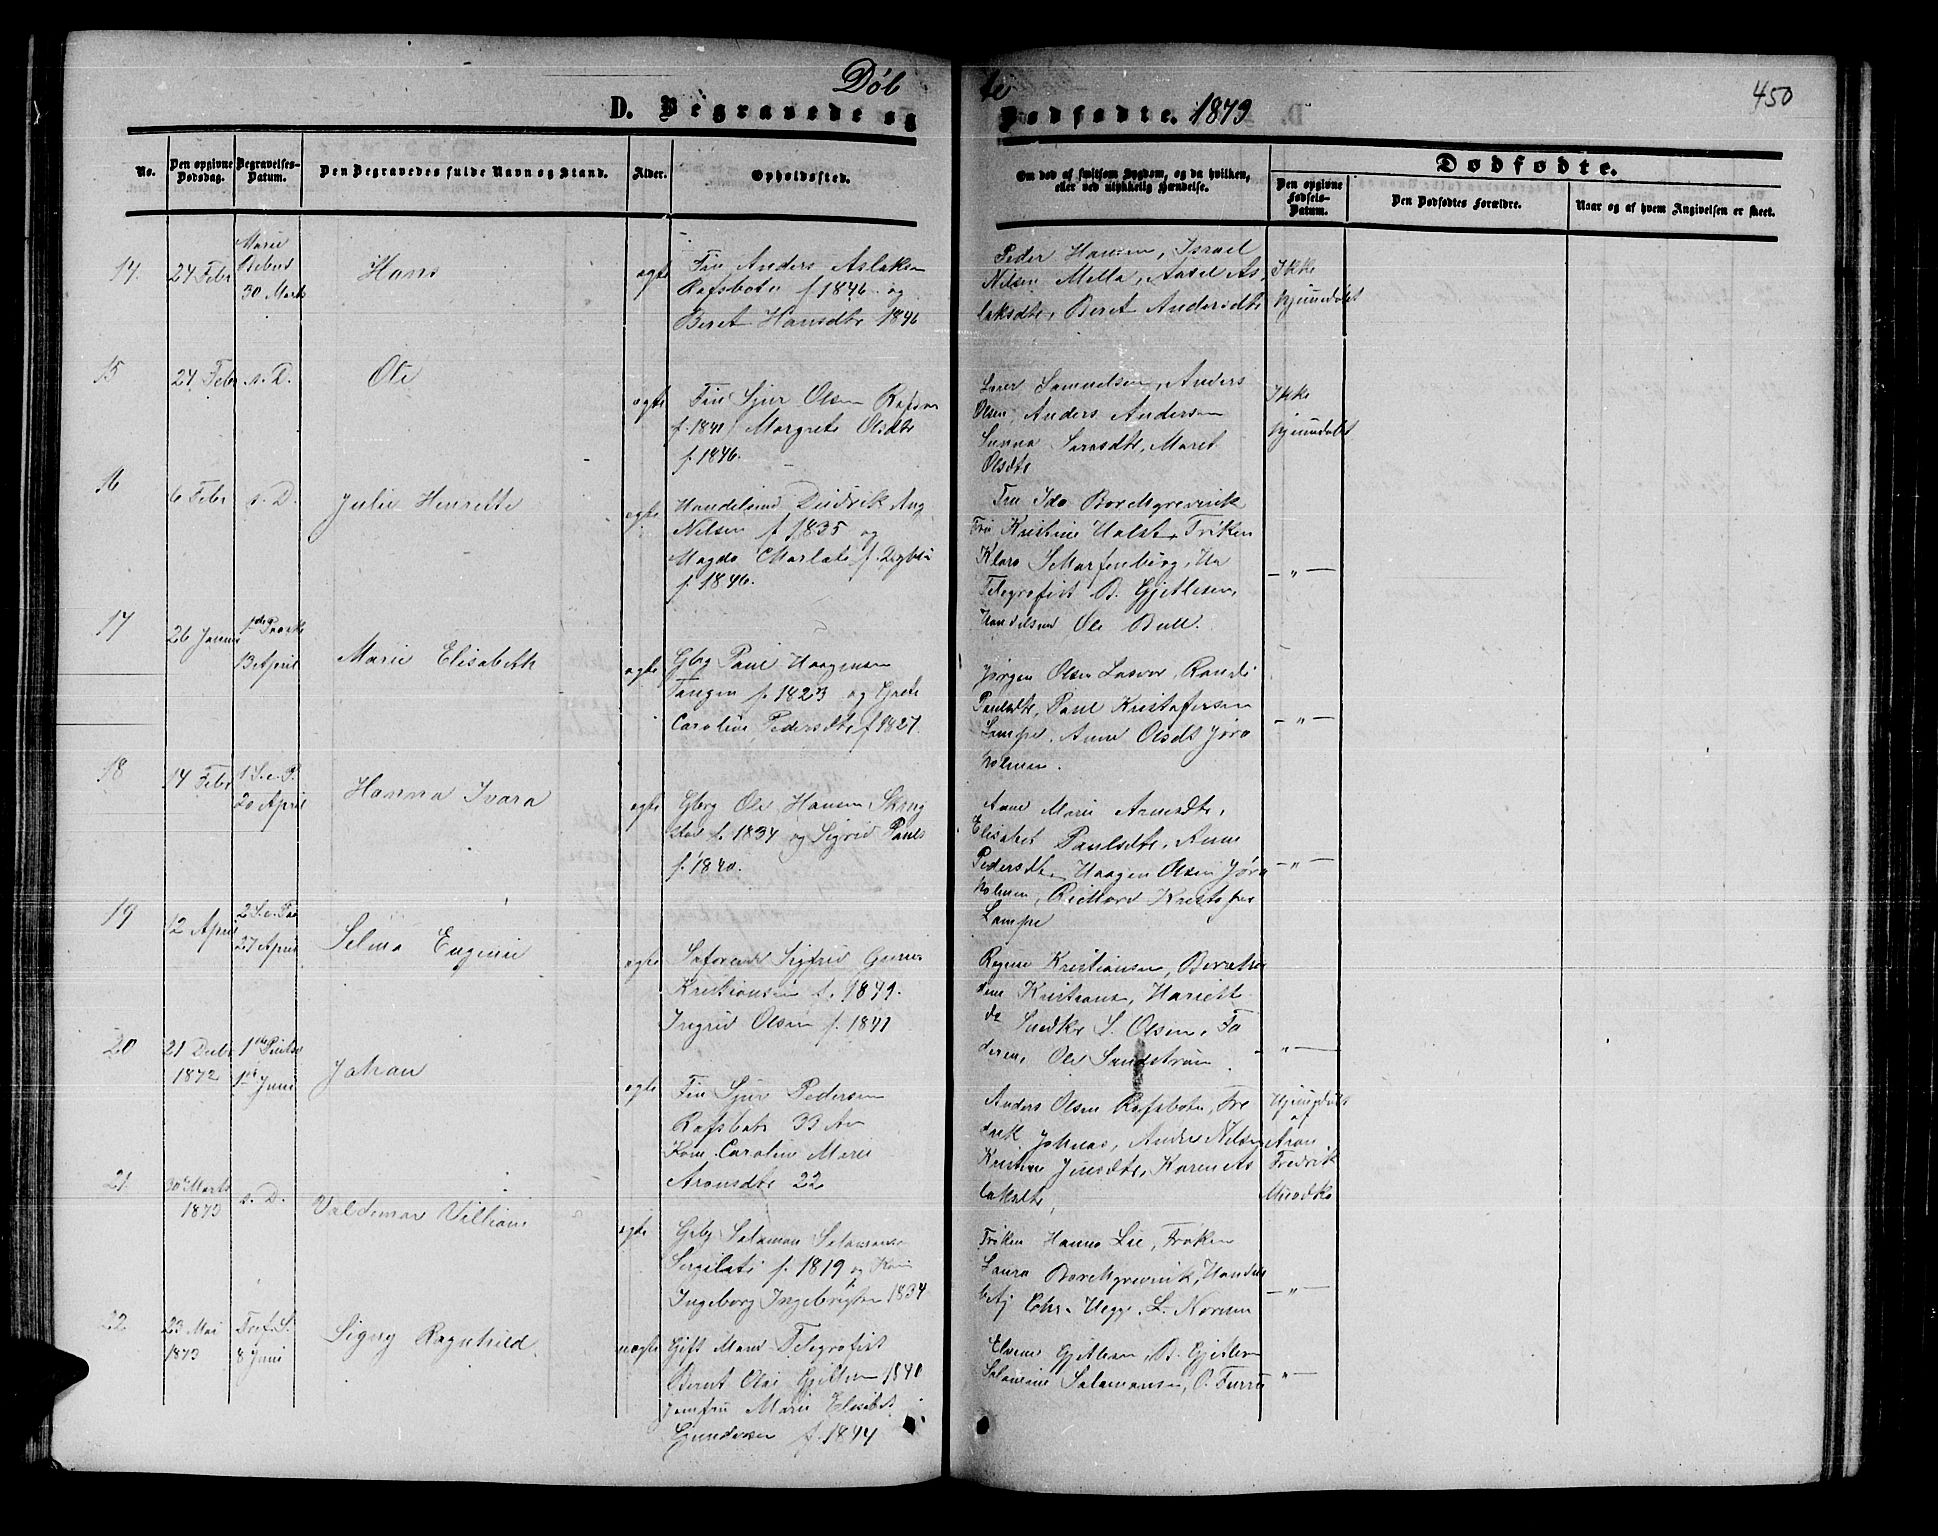 Døb te
D. Begravede og Dødfødte. 1873
450
No.
Den opgivne Dødsdag.
Begravelses-Datum.
Den Begravedes fulde Navn og Stand.
Alder.
Opholdssted.
Om død af smitsom Sygdom, og da hvilken,
eller ved ulykkelig Hændelse.
Dødfødte.
Den opgivne Fødsels-Datum.
Den Dødfødtes Forældre.
Naar og af hvem Angivelsen er skeet.
14.
24 Febr
Marie
Bebud
30 Marts
Hans
ægte
Fin Anders Aslaksen
Rafsbotn f 1846 og
Beret Hansdtr 1846
Peder Hansen, Israel
Nilsen Mella,
laksdtr, Beret Andersdtr
Ikke
hjemdøbt
15
24 Febr
s. D.
Ole
ægte
Fin Sjur Olsen
f. 1841 Margrete Olsdtr
f. 1846.
Samuelsen, Anders
Olsen, Anders Andersen
Sunna Larsdtr, Maret
Olsdtr
Ikke
hjemdøbt
16
6 Febr
s. D.
Julie Henriette
ægte
Handelsmd Diedrik Aug
Nilsen f 1835 og
Magda Charlate f.
f. 1846.
Fru Ida Borchgrevink
Fru Kristine Halst, Frøken
Klara
Telegrafist B. Gjetlesen,
Handelsmd Ole Bull.
— " —
17
26 Januar
1ste Paaske
13 April
Marie Elisabeth
ægte
Gbrg Paul Haagensen
Tangen f. 1823 og Grete
Caroline Pedersdtr f 1827.
Jørgen Olsen Randi
Paulsdtr, Paul Kristofersen
Lampe, Anne Olsdt Jøra
holmen.
— " —
18
14 Febr
1 S. e. P.
20 April
Hanna Ivara
ægte
Gbrg Ole Hansen Skog
stad f. 1834 og Sigrid Pauls
f. 1840.
Anne Marie Arnesdtr,
Elisabet Paulsdtr, Anne
Pedersdtr, Haagen Olsen Jøra
holmen, Richard Kristofer
Lampe
— " —
19
12 April
2 S. e. Paa
27 April
Selma Eugenie
ægte
Søfarende Sigfrid
Kristiansen f. 1849.
Ingrid Olsen f. 1841
Kristiansen,
Kristians, Hariett
S. Olsen, Fa
deren, Ole Sandstrøm.
— " —
20
21 Decbr
1872
1ste Pintse
1ste Juni
Johan
ægte
Fin Sjur Pedersen
Rafsbotn 33 Aar
Kone Caroline Marie
Aronsdtr 22
Anders Olsen Rafsbotn, Fre
drik Johnas, Anders Nilsen
Kristine Jensdtr, Karen As
laksdtr,
Hjemdøbt
af
Aron
Fredrik
21.
30 Marts
1873
s. D.
Valdemar Villiam
ægte
Gbrg Salamon Salamonsen
f. 1819 og Kone
Ingeborg Ingebrigtsen 1834
Frøken Hanna Lie, Frøken
Laura Borchgrevink, Handels
betj Chr. Hegge, L. Norman
— " —
22
23 Mai
1873
Tref. S.
8 Juni
Signy Ragnhild
uægte
Gift Mand Telegrafist
Bernt Olai Gjetlesen 1840
Jomfru Marie Elisabet
Gundersen f. 1844
Gjetlesen, B. Gjetlesen
Salamonsen, O. Furru
— " —